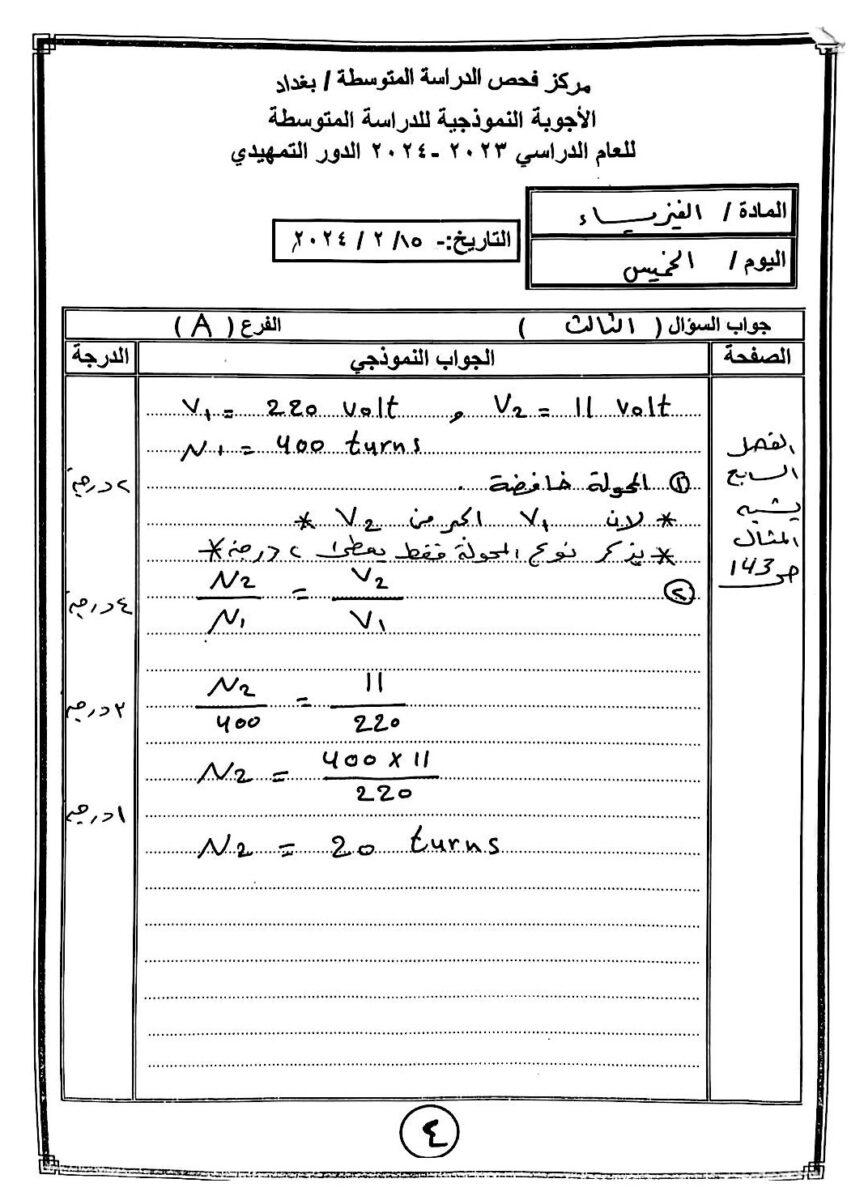 مركز فحص الدراسة المتوسطة / بغداد
الأجوبة النموذجية للدراسة المتوسطة
للعام الدراسي ٢٠٢٣ -٢٠٢٤ الدور التمهيدي
المادة / الفيزياء
اليوم / الخميس
التاريخ:- ١٥/ ٢ / ٢٠٢٤
جواب السؤال ( الثالث ) الفرع ( A )
الصفحة الجواب النموذجي الدرجة
V₁ = 220 volt , V₂ = 11 volt
N₁ = 400 turns
الفصل
السابع
يشبه
المثال
ص 143
① المحولة خافضة . ٢ درجة
* لان V₁ اكبر من V₂ *
* يذكر نوع المحولة فقط يعطى ٢ درجة *
② N₂/N₁ = V₂/V₁ ٤ درجة
N₂/400 = 11/220 ٣ درجة
N₂ = 400 x 11/220
١ درجة
N₂ = 20 turns
٤